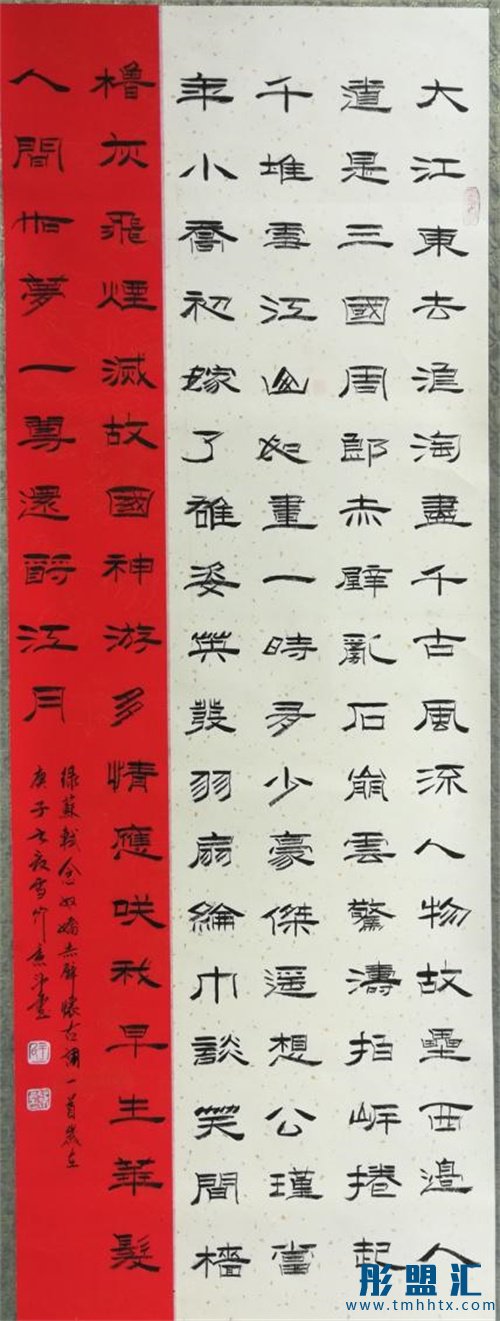 大江東去浪淘盡千古風流人物故壘西邊人
道是三國周郎赤壁亂石崩雲驚濤拍岸捲起
千堆雪江山如畫一時多少豪傑遥想公瑾當
年小喬初嫁了雄姿英發羽扇綸巾談笑間檣
櫓灰飛煙滅故國神游多情應咲我早生華髮
人間如夢一尊還酹江月
録蘇軾念奴嬌赤壁懷古詞一首歲在
庚子
彤盟汇
www.tmhhtx.com